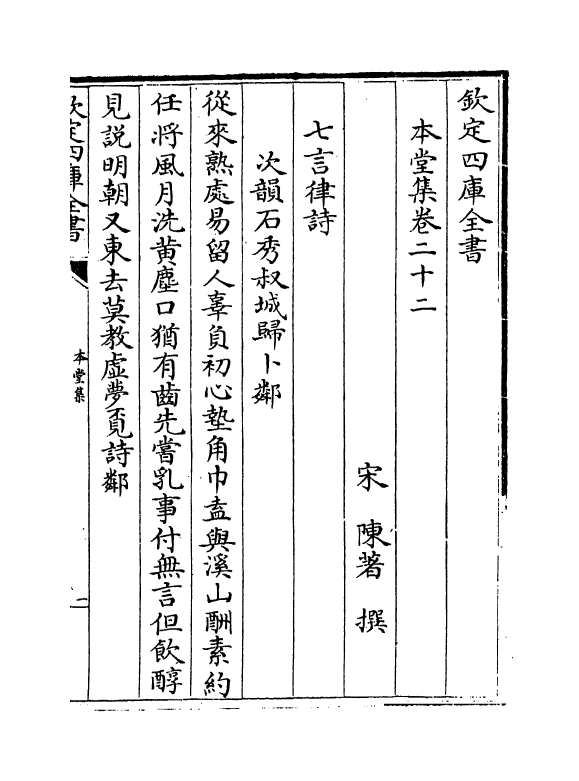 欽定四庫全書
本堂集卷二十二
宋　陳著　撰
七言律詩
次韻石秀叔城歸卜鄰
從來熟處易留人辜負初心墊角巾盍與溪山酬素約
任將風月洗黃塵口猶有齒先嘗乳事付無言但飲醇
見説明朝又東去莫教虛夢覓詩鄰
欽定四庫全書
本堂集
一